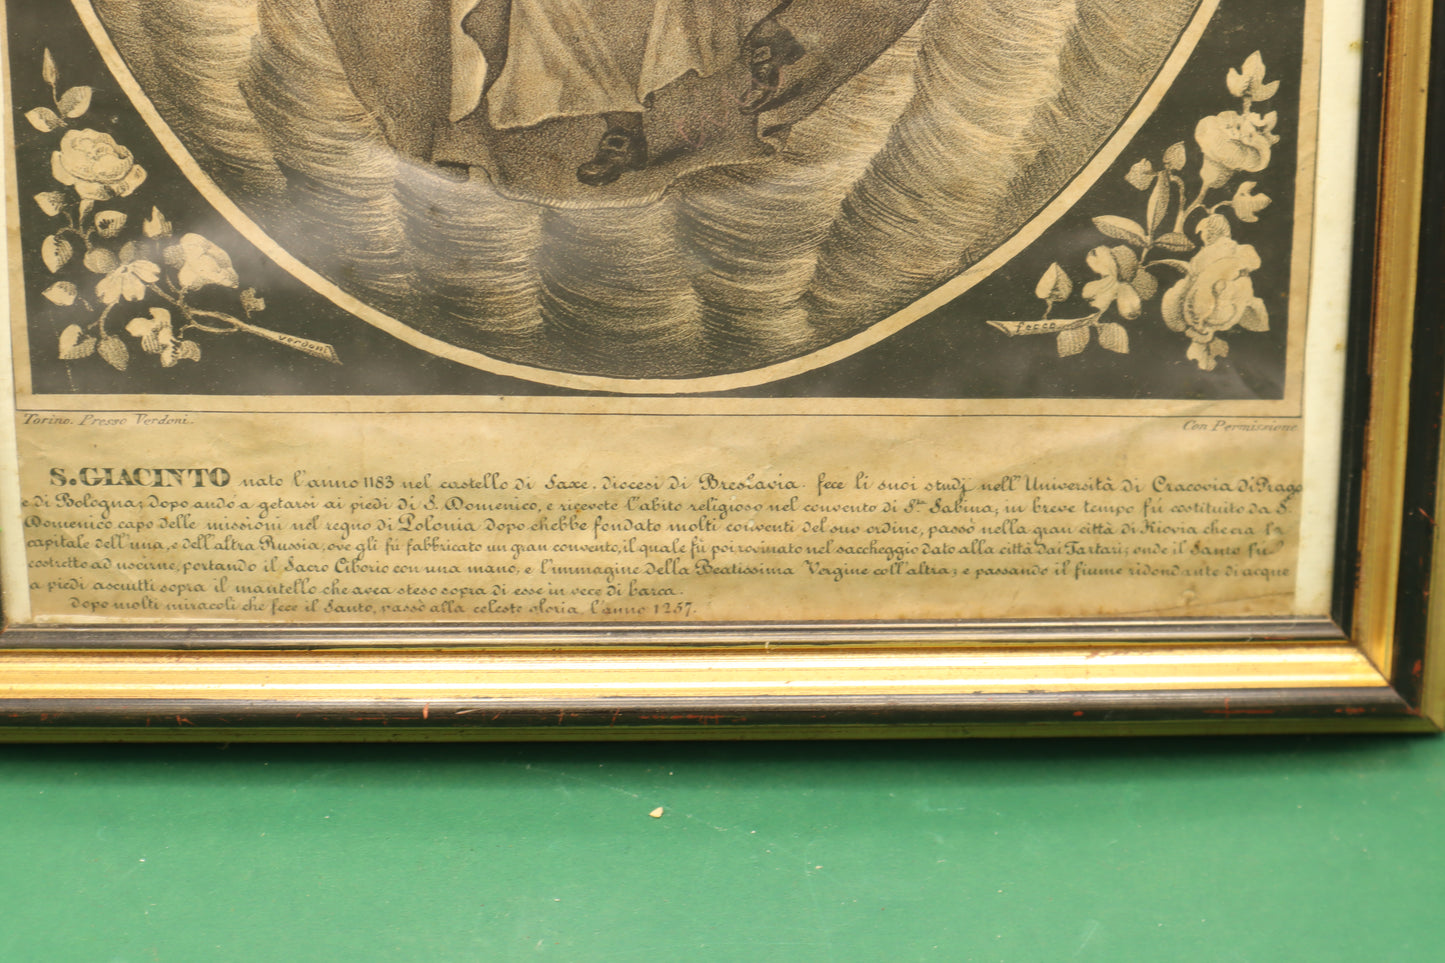 verdoni
fecce
Torino. Presso Verdoni.
Con Permissione
S. GIACINTO nato l'anno 1183 nel castello di Saxe. diocesi di Breslavia. fece li suoi studj nell'Università di Cracovia di Prago
e di Bologna; dopo andò a getarsi ai piedi di S. Domenico, e ricevete l'abito religioso nel convento di Sta. Sabina; in breve tempo fú costituito da S.
Domenico capo delle missioni nel regno di Polonia dopo chebbe fondato molti conventi del suo ordine, passò nella gran città di Kiovia che era la
capitale dell'una, e dell'altra Russia; ove gli fú fabbricato un gran convento, il quale fù poi rovinato nel saccheggio dato alla città dai Tartari; onde il Santo fú
costretto ad uscirne, portando il Sacro Ciborio con una mano, e l'immagine della Beatissima Vergine coll'altra; e passando il fiume ridondante di acque
a piedi asciutti sopra il mantello che avea steso sopra di esse in vece di barca.
dopo molti miracoli che fece il Santo, passò alla celeste gloria, l'anno 1257.